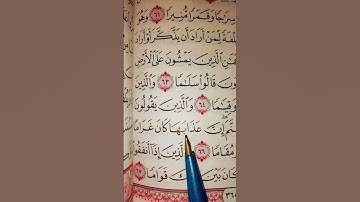 سِرَٰجًا وَقَمَرًا مُّنِيرًا ٦١ وَهُوَ
لِّمَنْ أَرَادَ أَن يَذَّكَّرَ أَوْ أَرَادَ
ٱلَّذِينَ يَمْشُونَ عَلَى ٱلْأَرْضِ
قَالُوا۟ سَلَٰمًا ٦٣ وَٱلَّذِينَ
وَقِيَٰمًا ٦٤ وَٱلَّذِينَ يَقُولُونَ
إِنَّ عَذَابَهَا كَانَ غَرَامًا
وَمُقَامًا ٦٦ وَٱلَّذِينَ إِذَآ أَنفَقُوا۟
كَانَ بَيْنَ قَوَامًا ٦٧